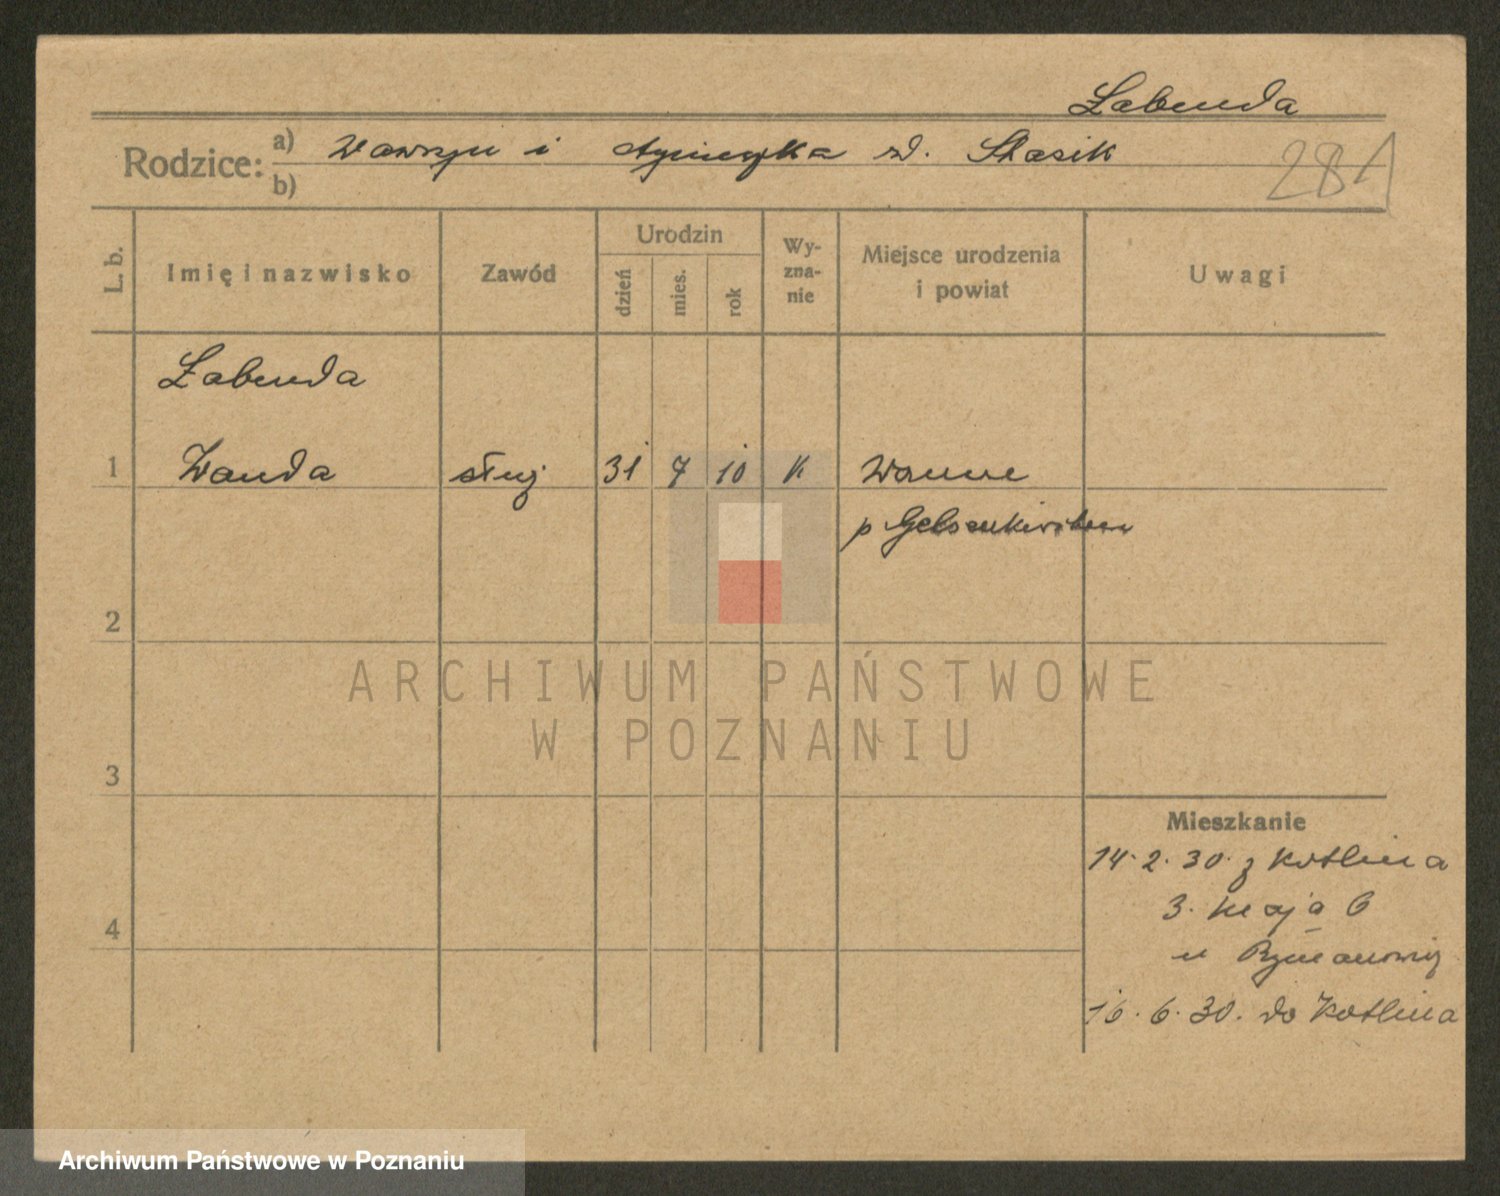 Łabenda
Rodzice: a) Wawrzyn i Agnieszka zd. Stasik
b)
281
L. b.
Imię i nazwisko
Zawód
Urodzin
dzień
mies.
rok
Wy-
zna-
nie
Miejsce urodzenia
i powiat
Uwagi
Łabenda
1 Wanda służ 31 7 10 k Wanne
p Gelsenkirchen
2
ARCHIWUM PAŃSTWOWE
W POZNANIU
3
Mieszkanie
14. 2. 30. z Kotlina
3. maja 6
4
u
16. 6. 30. do Kotlina
Archiwum Państwowe w Poznaniu